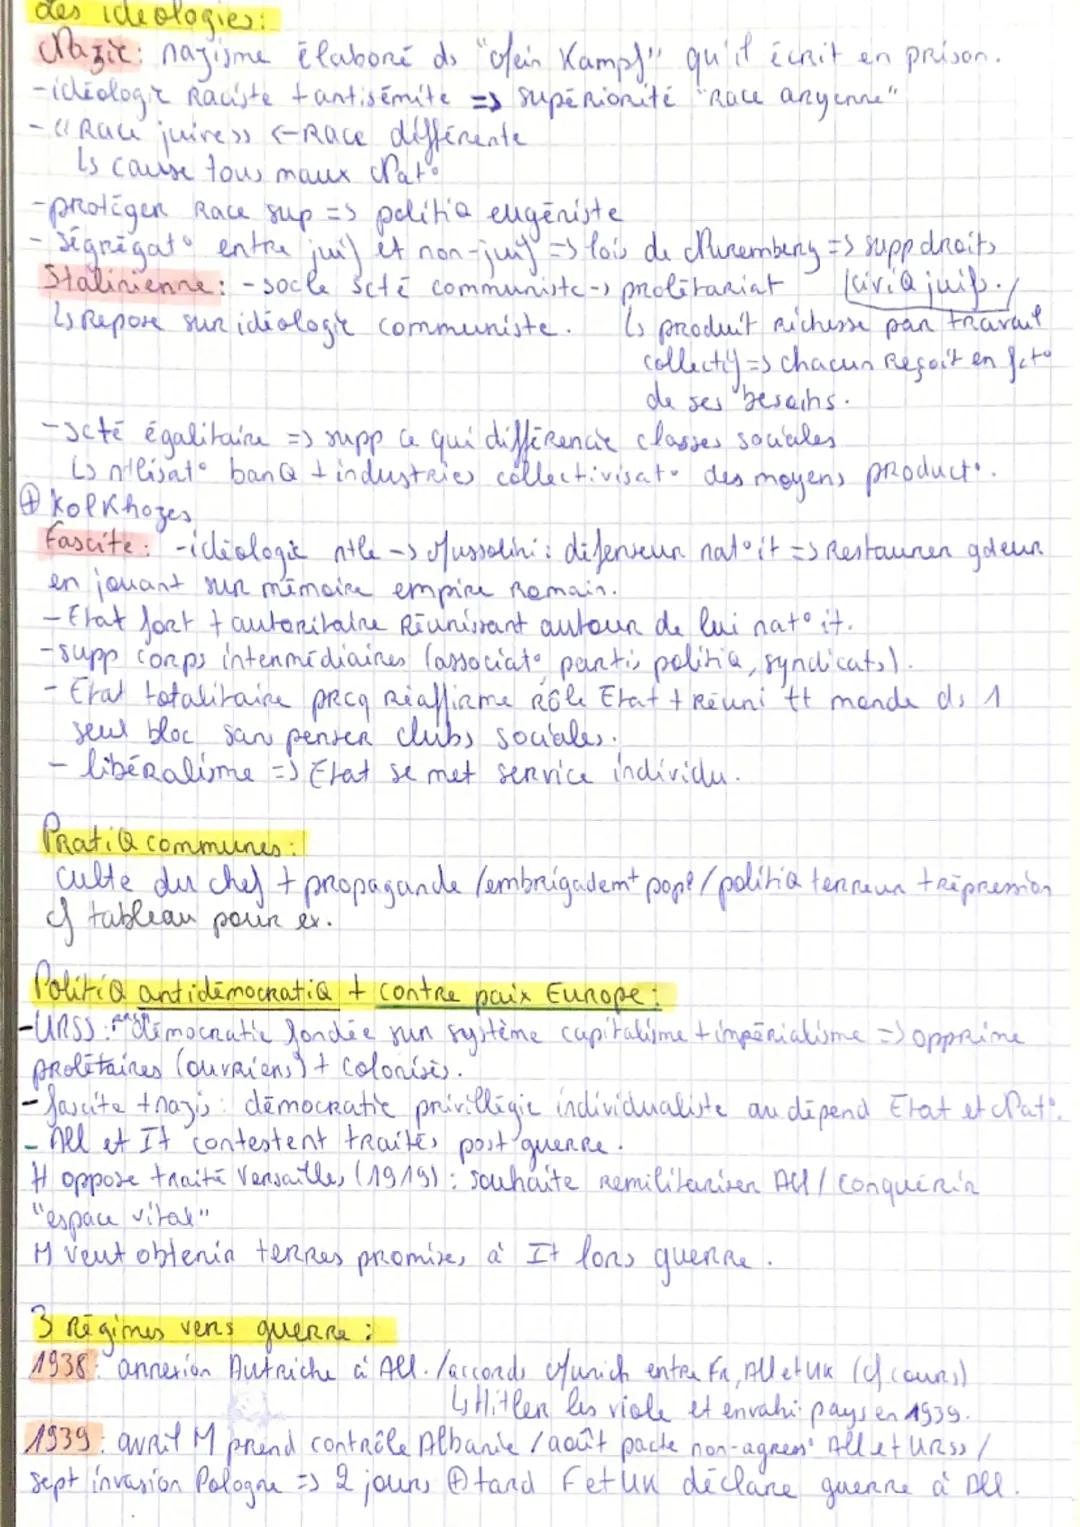 des idéologies:
Nazie: nazisme élaboré ds "Mein Kampf" qu'il écrit en prison.
-idéologie Raciste + antisémite => supériorité "Race aryenne"
- "Race juive" <-Race différente
↳ cause tous maux Nat°
-protéger Race sup => politiQ eugéniste
- Ségrégat° entre juif et non-juif => lois de Nuremberg => supp droits civiQ juifs.
Stalinienne: - socle scté communiste -> prolétariat
↳ Repose sur idéologie communiste. ↳ produit richesse par travail
collectif => chacun Reçoit en fct°
de ses besoins.
-scté égalitaire => supp ce qui différencie classes sociales
↳ n'tlisat° banQ + industries collectivisat° des moyens product°.
⊕ Kolkhozes
Fascite: -idéologie ntle -> Mussolini: défenseur nat° it => Restaurer gdeur
en jouant sur mémoire empire Romain.
- Etat fort + autoritaire Réunissant autour de lui nat° it.
-supp corps intermédiaires (associat°, partis politiQ, syndicats).
- Etat totalitaire prcq Réaffirme Rôle Etat + Réuni tt monde ds 1
seul bloc, sans penser clubs sociales.
- libéralisme => Etat se met service individu.
PratiQ communes:
culte du chef + propagande /embrigademt pop° / politiQ terreur + répression
cf tableau pour ex.
PolitiQ antidémocratiQ + contre paix Europe:
-URSS: démocratie fondée sur système capitalisme + impérialisme => opprime
prolétaires (ouvriers) + colonisés.
- fascite + nazis: démocratie privillégie individualiste au dépend Etat et Nat°.
- All et It contestent traités post guerre.
H oppose traité Versailles (1919): souhaite remilitariser All / conquérir
"espace vital"
M veut obtenir terres promises à It lors guerre.
3 Régimes vers guerre:
1938: annexion Autriche à All. /accords Munich entre Fr, All et UK (cf cours)
↳ Hitler les viole et envahi pays en 1939.
1939: avril M prend contrôle Albanie / août pacte non-agress° All et URSS /
sept invasion Pologne => 2 jours ⊕ tard F et UK déclare guerre à All.